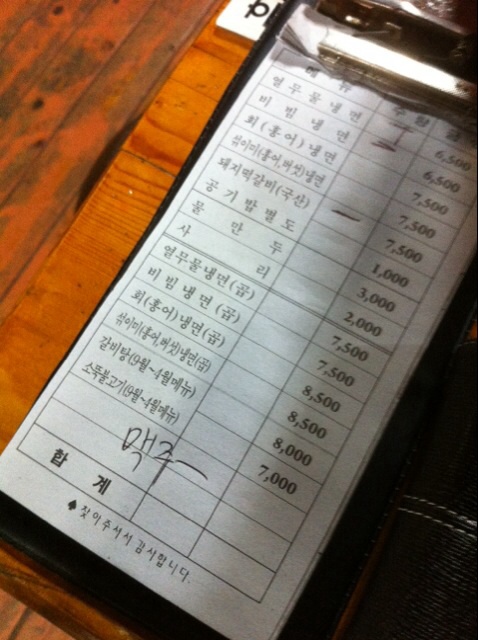 메 뉴 수 량
열무물냉면 6,500
비 빔 냉 면 6,500
회(홍어)냉면 7,500
섞이미(홍어,버섯)냉면 7,500
돼지떡갈비(국산) 7,500
공기밥별도 1,000
물 만 두 3,000
사 리 2,000
열무물냉면(곱) 7,500
비 빔 냉 면(곱) 7,500
회(홍어)냉면(곱) 8,500
섞이미(홍어,버섯)냉면(곱) 8,500
갈비탕(9월~4월메뉴) 8,000
소뚝불고기(9월~4월메뉴) 7,000
맥주
합 계
♠ 찾아주셔서 감사합니다.